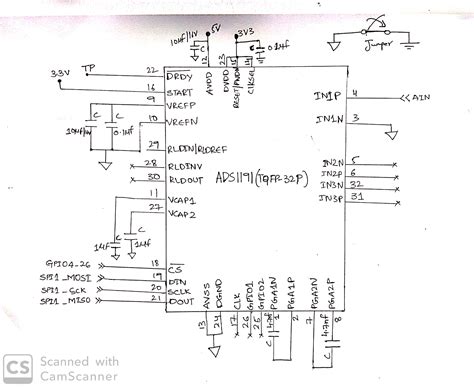 10µf/10V
5V
3V3
0.1uf
Jumper
12
23
15
14
AVDD
DVDD
RESET/PWDN
CLKSEL
TP
22
DRDY
3.3V
16
START
9
VREFP
C
C
10uf/10V
0.1uf
10
VREFN
29
RLDIN/RLDREF
28
RLDINV
30
RLDOUT
ADS1191(TQFP-32P)
11
VCAP1
27
VCAP2
C
C
1uf
1uf
IN1P
4
AIN
IN1N
3
IN2N
5
IN2P
6
IN3N
32
IN3P
31
GPIO4-26
18
CS
SPI1_MOSI
19
DIN
SPI1_SCK
20
SCLK
SPI1_MISO
21
DOUT
AVSS
DGND
CLK
GPIO1
GPIO2
PGA1N
PGA1P
PGA2N
PGA2P
13
24
17
26
25
2
1
7
8
C
4.7nf
C
4.7nf
CS
Scanned with
CamScanner